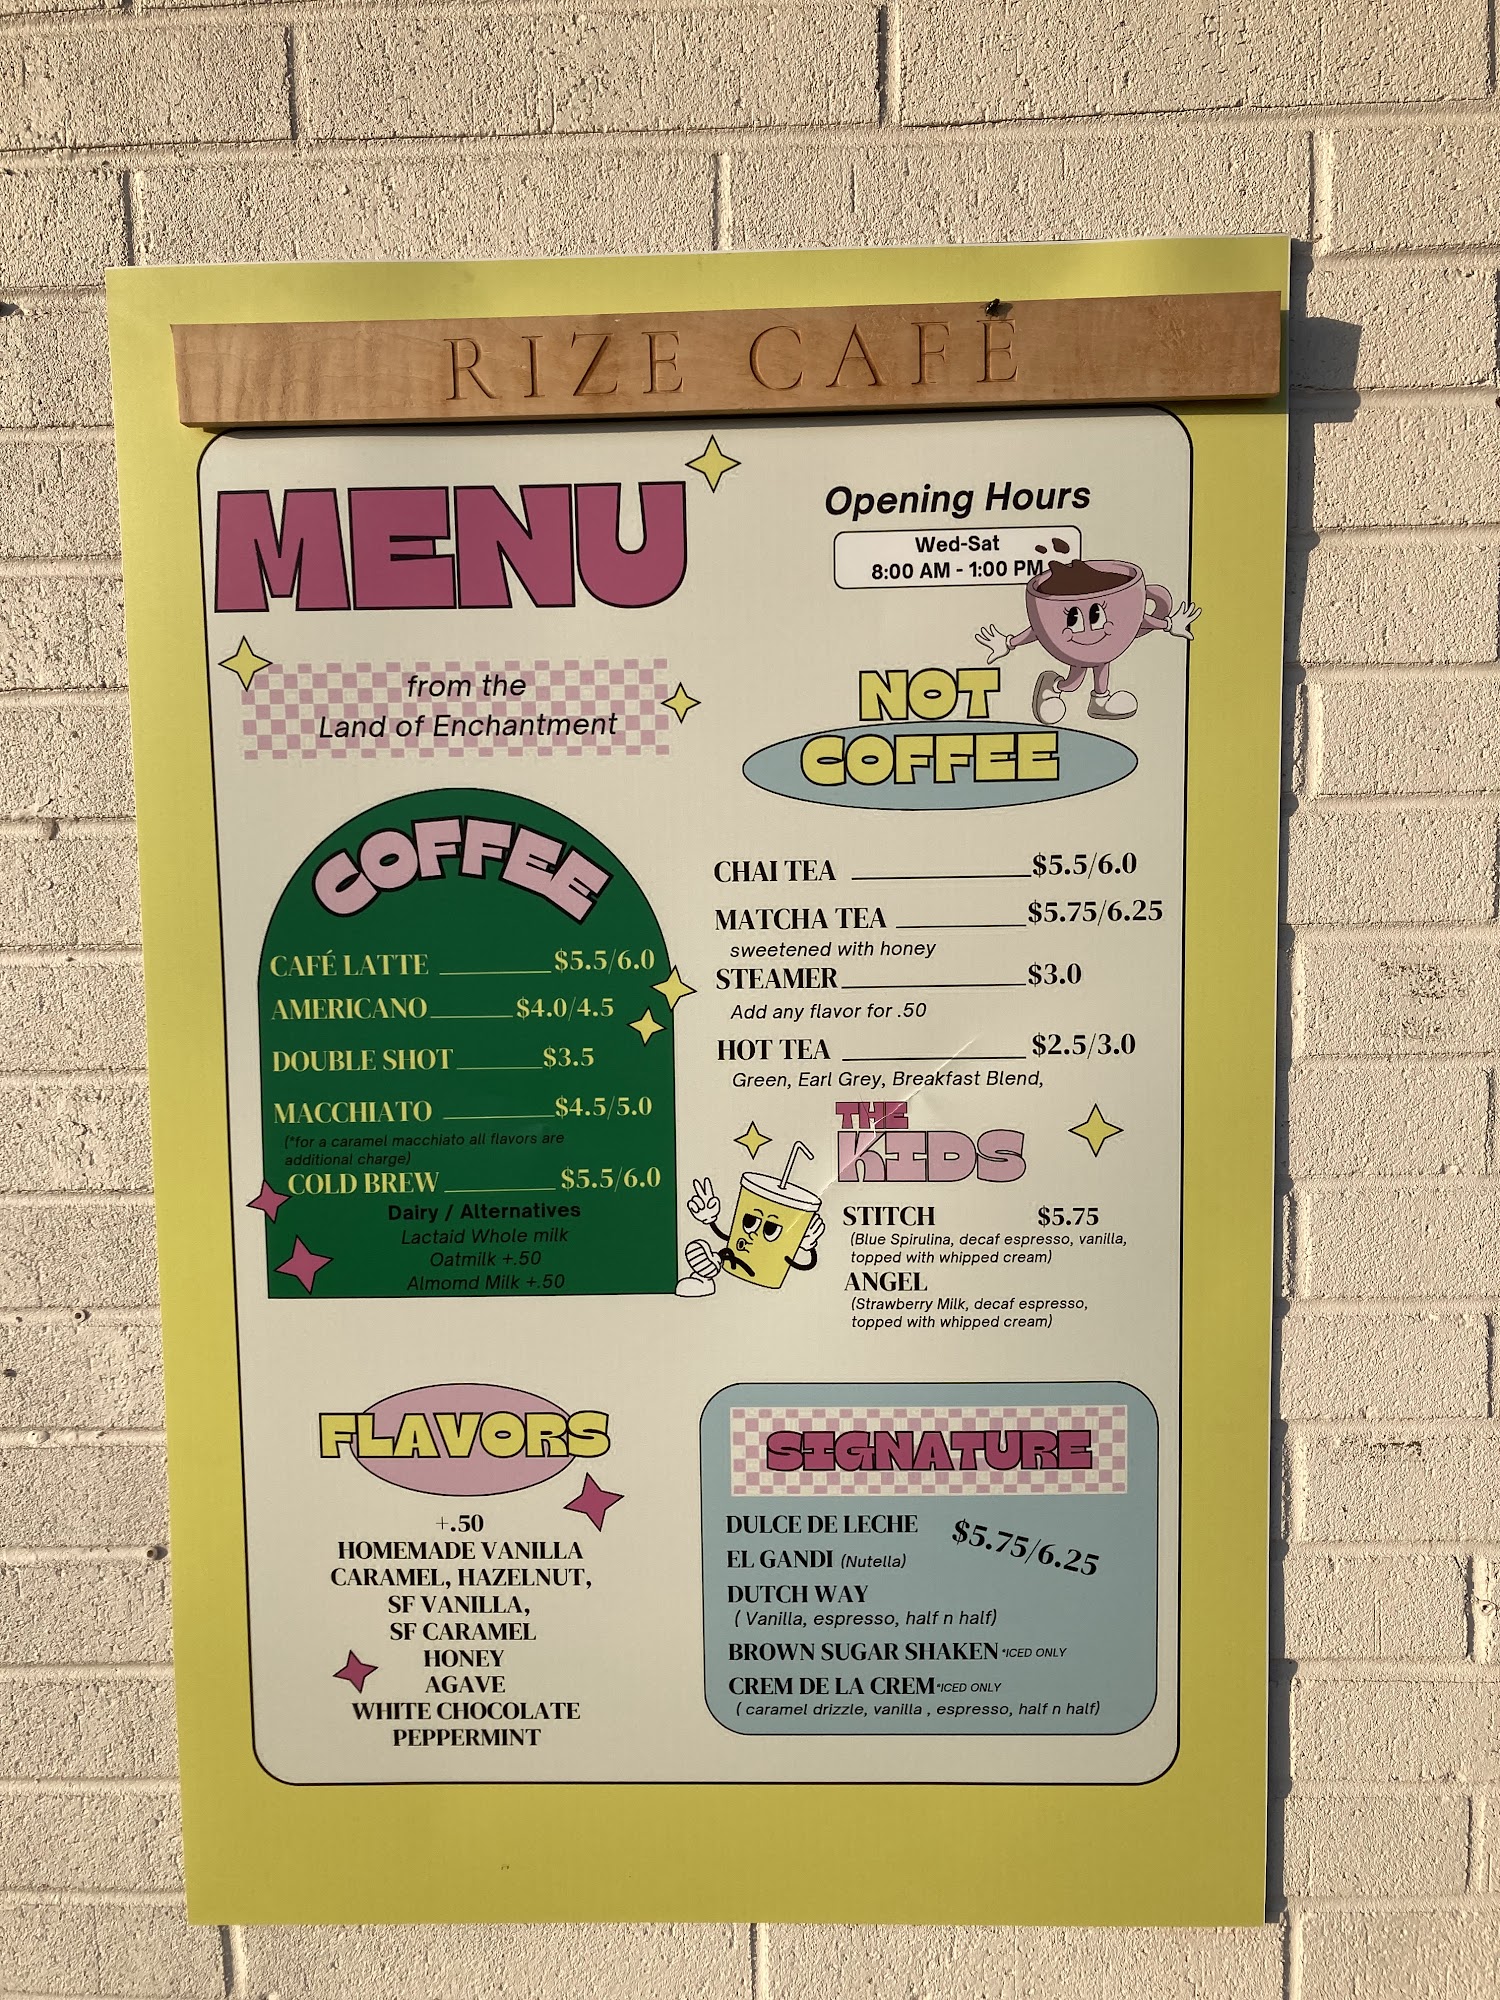 RIZE CAFÉ
MENU
from the
Land of Enchantment
Opening Hours
Wed-Sat
8:00 AM - 1:00 PM
COFFEE
CAFÉ LATTE $5.5/6.0
AMERICANO $4.0/4.5
DOUBLE SHOT $3.5
MACCHIATO $4.5/5.0
(*for a caramel macchiato all flavors are
additional charge)
COLD BREW $5.5/6.0
Dairy / Alternatives
Lactaid Whole milk
Oatmilk +.50
Almomd Milk +.50
NOT
COFFEE
CHAI TEA $5.5/6.0
MATCHA TEA $5.75/6.25
sweetened with honey
STEAMER $3.0
Add any flavor for .50
HOT TEA $2.5/3.0
Green, Earl Grey, Breakfast Blend,
THE
KIDS
STITCH $5.75
(Blue Spirulina, decaf espresso, vanilla,
topped with whipped cream)
ANGEL
(Strawberry Milk, decaf espresso,
topped with whipped cream)
FLAVORS
+.50
HOMEMADE VANILLA
CARAMEL, HAZELNUT,
SF VANILLA,
SF CARAMEL
HONEY
AGAVE
WHITE CHOCOLATE
PEPPERMINT
SIGNATURE
DULCE DE LECHE $5.75/6.25
EL GANDI (Nutella)
DUTCH WAY
( Vanilla, espresso, half n half)
BROWN SUGAR SHAKEN *ICED ONLY
CREM DE LA CREM *ICED ONLY
( caramel drizzle, vanilla , espresso, half n half)